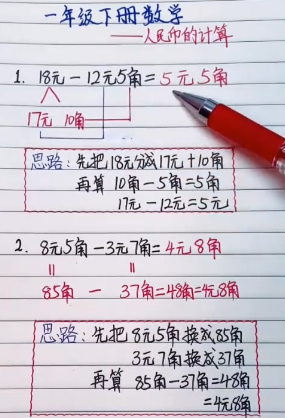 一年级下册数学
——人民币的计算
1. 18元-12元5角=5元5角
17元 10角
思路:先把18元分成17元+10角
再算 10角-5角=5角
17元-12元=5元
2. 8元5角-3元7角=4元8角
85角 - 37角=48角=4元8角
思路:先把8元5角换成85角
3元7角换成37角
再算 85角-37角=48角
=4元8角